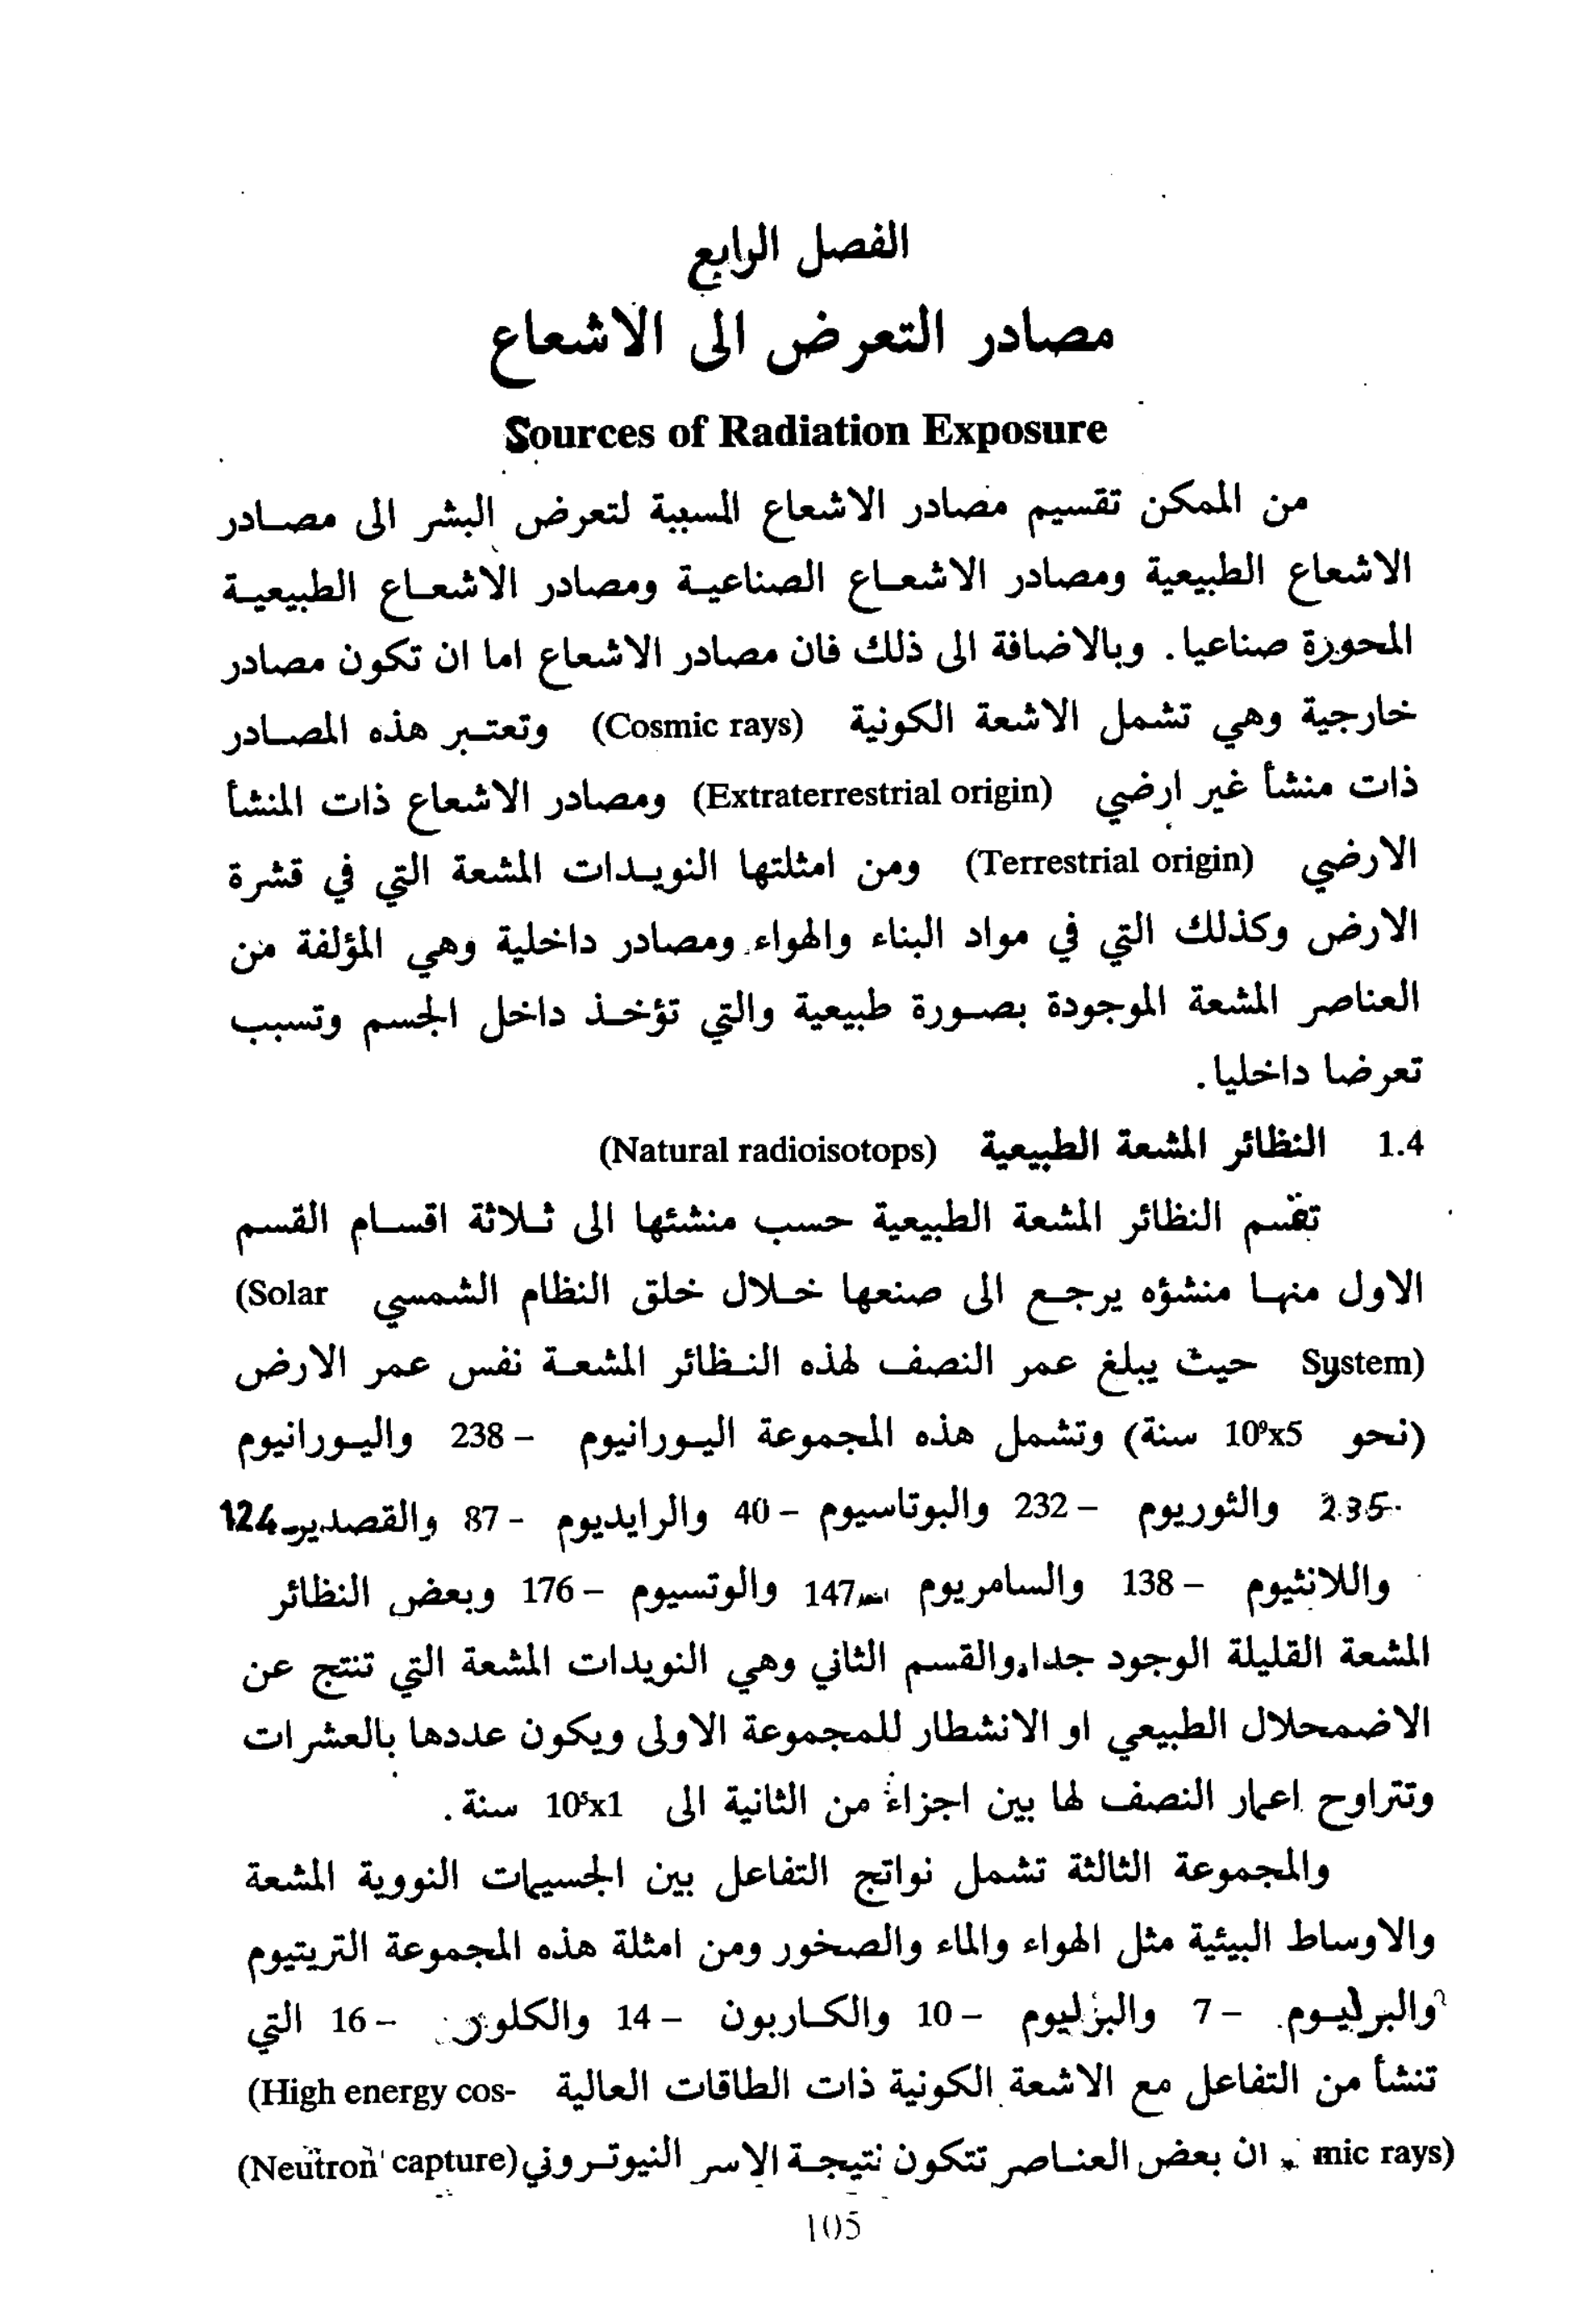 الفصل الرابع
مصادر التعرض الى الاشعاع
Sources of Radiation Exposure
من الممكن تقسيم مصادر الاشعاع المسببة لتعرض البشر الى مصادر
الاشعاع الطبيعية ومصادر الاشعاع الصناعية ومصادر الاشعاع الطبيعية
المحورة صناعيا. وبالاضافة الى ذلك فان مصادر الاشعاع اما ان تكون مصادر
خارجية وهي تشمل الاشعة الكونية (Cosmic rays) وتعتبر هذه المصادر
ذات منشأ غير ارضي (Extraterrestrial origin) ومصادر الاشعاع ذات المنشأ
الارضي (Terrestrial origin) ومن امثلتها النويدات المشعة التي في قشرة
الارض وكذلك التي في مواد البناء والهواء ومصادر داخلية وهي المؤلفة من
العناصر المشعة الموجودة بصورة طبيعية والتي تؤخذ داخل الجسم وتسبب
تعرضا داخليا.
1.4 النظائر المشعة الطبيعية (Natural radioisotops)
تقسم النظائر المشعة الطبيعية حسب منشئها الى ثلاثة اقسام القسم
الاول منها منشؤه يرجع الى صنعها خلال خلق النظام الشمسي (Solar
System) حيث يبلغ عمر النصف لهذه النظائر المشعة نفس عمر الارض
(نحو 10⁹x5 سنة) وتشمل هذه المجموعة اليورانيوم - 238 واليورانيوم
235 والثوريوم - 232 والبوتاسيوم - 40 والرايديوم - 87 والقصدير-124
واللانثيوم - 138 والسامريوم 147 والوتسيوم - 176 وبعض النظائر
المشعة القليلة الوجود جدا، والقسم الثاني وهي النويدات المشعة التي تنتج عن
الاضمحلال الطبيعي او الانشطار للمجموعة الاولى ويكون عددها بالعشرات
وتتراوح اعمار النصف لها بين اجزاء من الثانية الى 10⁵x1 سنة.
والمجموعة الثالثة تشمل نواتج التفاعل بين الجسيمات النووية المشعة
والاوساط البيئية مثل الهواء والماء والصخور ومن امثلة هذه المجموعة التريتيوم
والبرليوم - 7 والبزليوم - 10 والكاربون - 14 والكلور - 16 التي
تنشأ من التفاعل مع الاشعة الكونية ذات الطاقات العالية (High energy cos-
mic rays) . ان بعض العناصر تتكون نتيجة الاسر النيوتروني (Neutron capture)
105